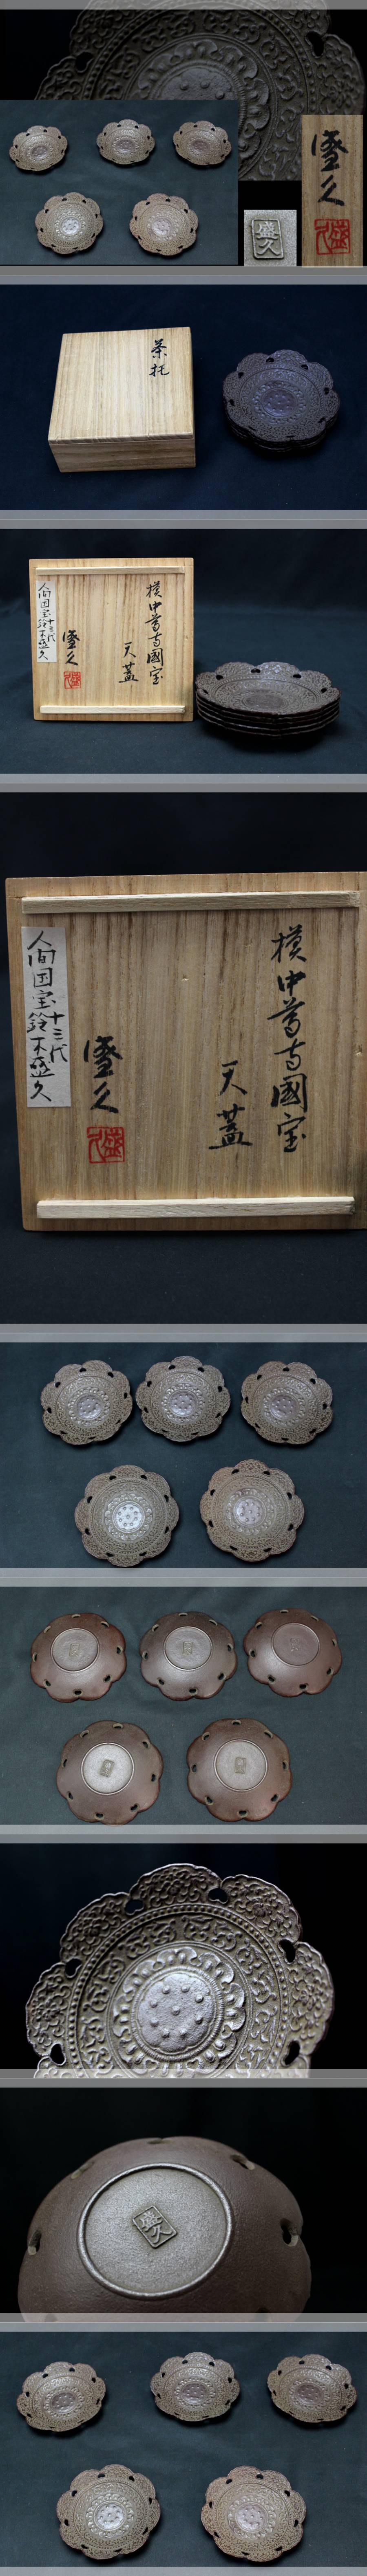 盛久
盛久
盛
茶托
模中尊寺國宝
天蓋
盛久
盛
人间国宝十三代
鈴木盛久
模中尊寺國宝
天蓋
盛久
盛
人间国宝十三代
鈴木盛久
盛久